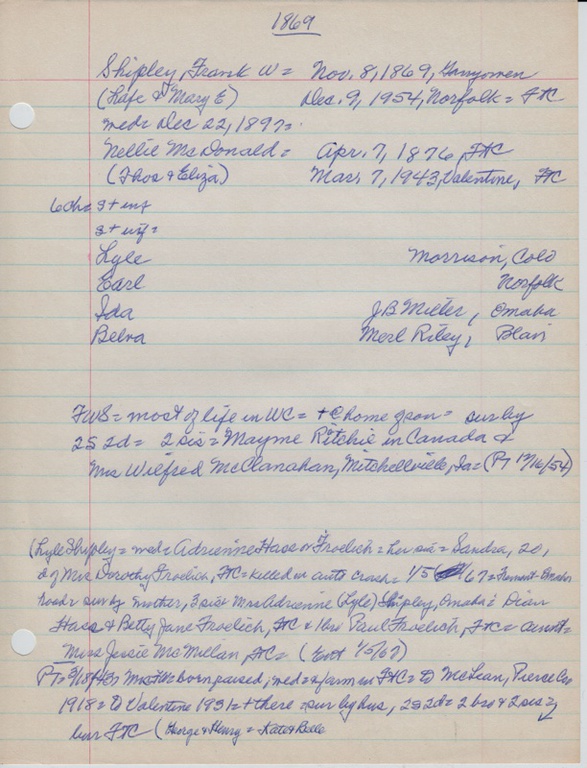 1869
Shipley, Frank W = Nov. 8, 1869, Garryowen
(Lafe & Mary E) Dec. 9, 1954, Norfolk = FtC
med = Dec 22, 1897 =
Nellie McDonald = Apr. 7, 1876, FtC
(Thos & Eliza) Mar. 7, 1943, Valentine, FtC
6 ch = 2 + inf
2 + inf =
Lyle Morrison, Colo
Earl Norfolk
Ida J B Miller, Omaha
Belva Merl Riley, Blair
FWS = most of life in WC = + @ home of son = sur by
2S 2d = 2 sis = Mayme Ritchie in Canada &
Mrs Wilfred McClanahan, Mitchellville, Ia = (PT 12/16/54)
(Lyle Shipley = med = Adrienne Hass or Froelich = her sis = Sandra, 20,
d of Mrs Dorothy Froelich, FtC = killed in auto crash = 1/5 67 = Fremont-Omaha
road = sur by mother, 3 sis = Mrs Adrienne (Lyle) Shipley, Omaha & Dian
Hass & Betty Jane Froelich, FtC & bro Paul Froelich, FtC = aunt =
Miss Jessie McMillan, FtC = (Ent 1/5/67)
PT = born & raised, med = & farm in FtC = to McLean, Pierce Co
1918 = to Valentine 1931 = + there = sur by hus, 2s 2d = 2 bro & 2 sis =
bur FtC (George & Henry = Kate & Belle